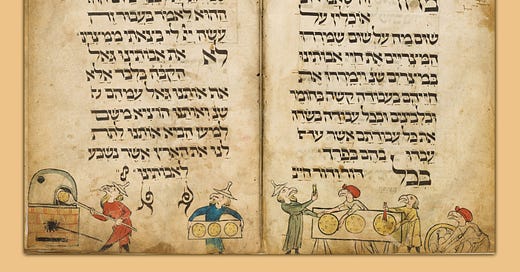 אוכלין על
שום מה על שום שמררו
המצריים את חיי אבותינו
במצרים שנ' וימררו את
חייהם בעבודה קשה בחומר
ובלבנים ובכל עבודה בשדה
את כל עבודתם אשר עבדו
בהם בפרך
בכל דור ודור חייב
ההוא לאמר בעבור זה
עשה יי לי בצאתי ממצרים
לא את אבותינו גאל
הקבה בלבד אלא
אף אותנו גאל עמהם
שנ' ואותנו הוציא משם
למען הביא אותנו לתת
לנו את הארץ אשר נשבע
לאבותינו